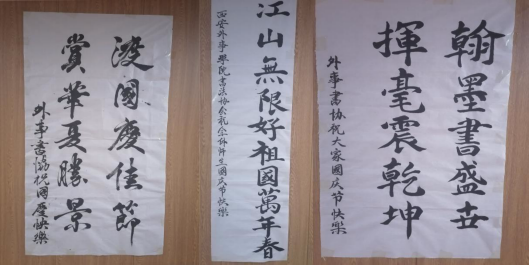 渡國慶佳節
賞華夏勝景
外事書協祝國慶快樂
江山無限好祖國萬年春
西安外事學院書法协会礼全体师生國庆节快樂
翰墨書盛世
揮毫震乾坤
外事書协祝大家國庆节快樂